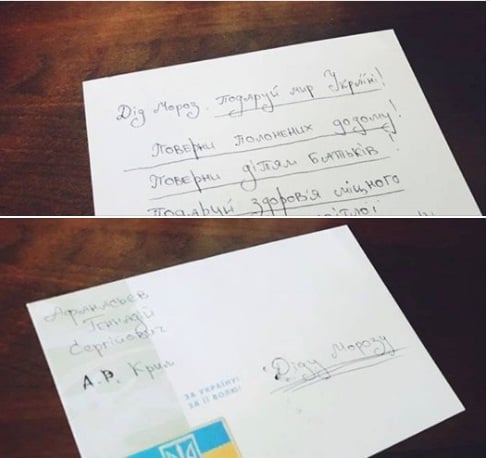 Дід Мороз. Подаруй мир Україні!
Поверни полонених додому!
Поверни дітям батьків!
Подаруй здоров'я міцного
Афанасьєв
Геннадій
Сергійович
А.Р. Крим
ЗА УКРАЇНУ!
ЗА ЇЇ ВОЛЮ!
Діду Морозу